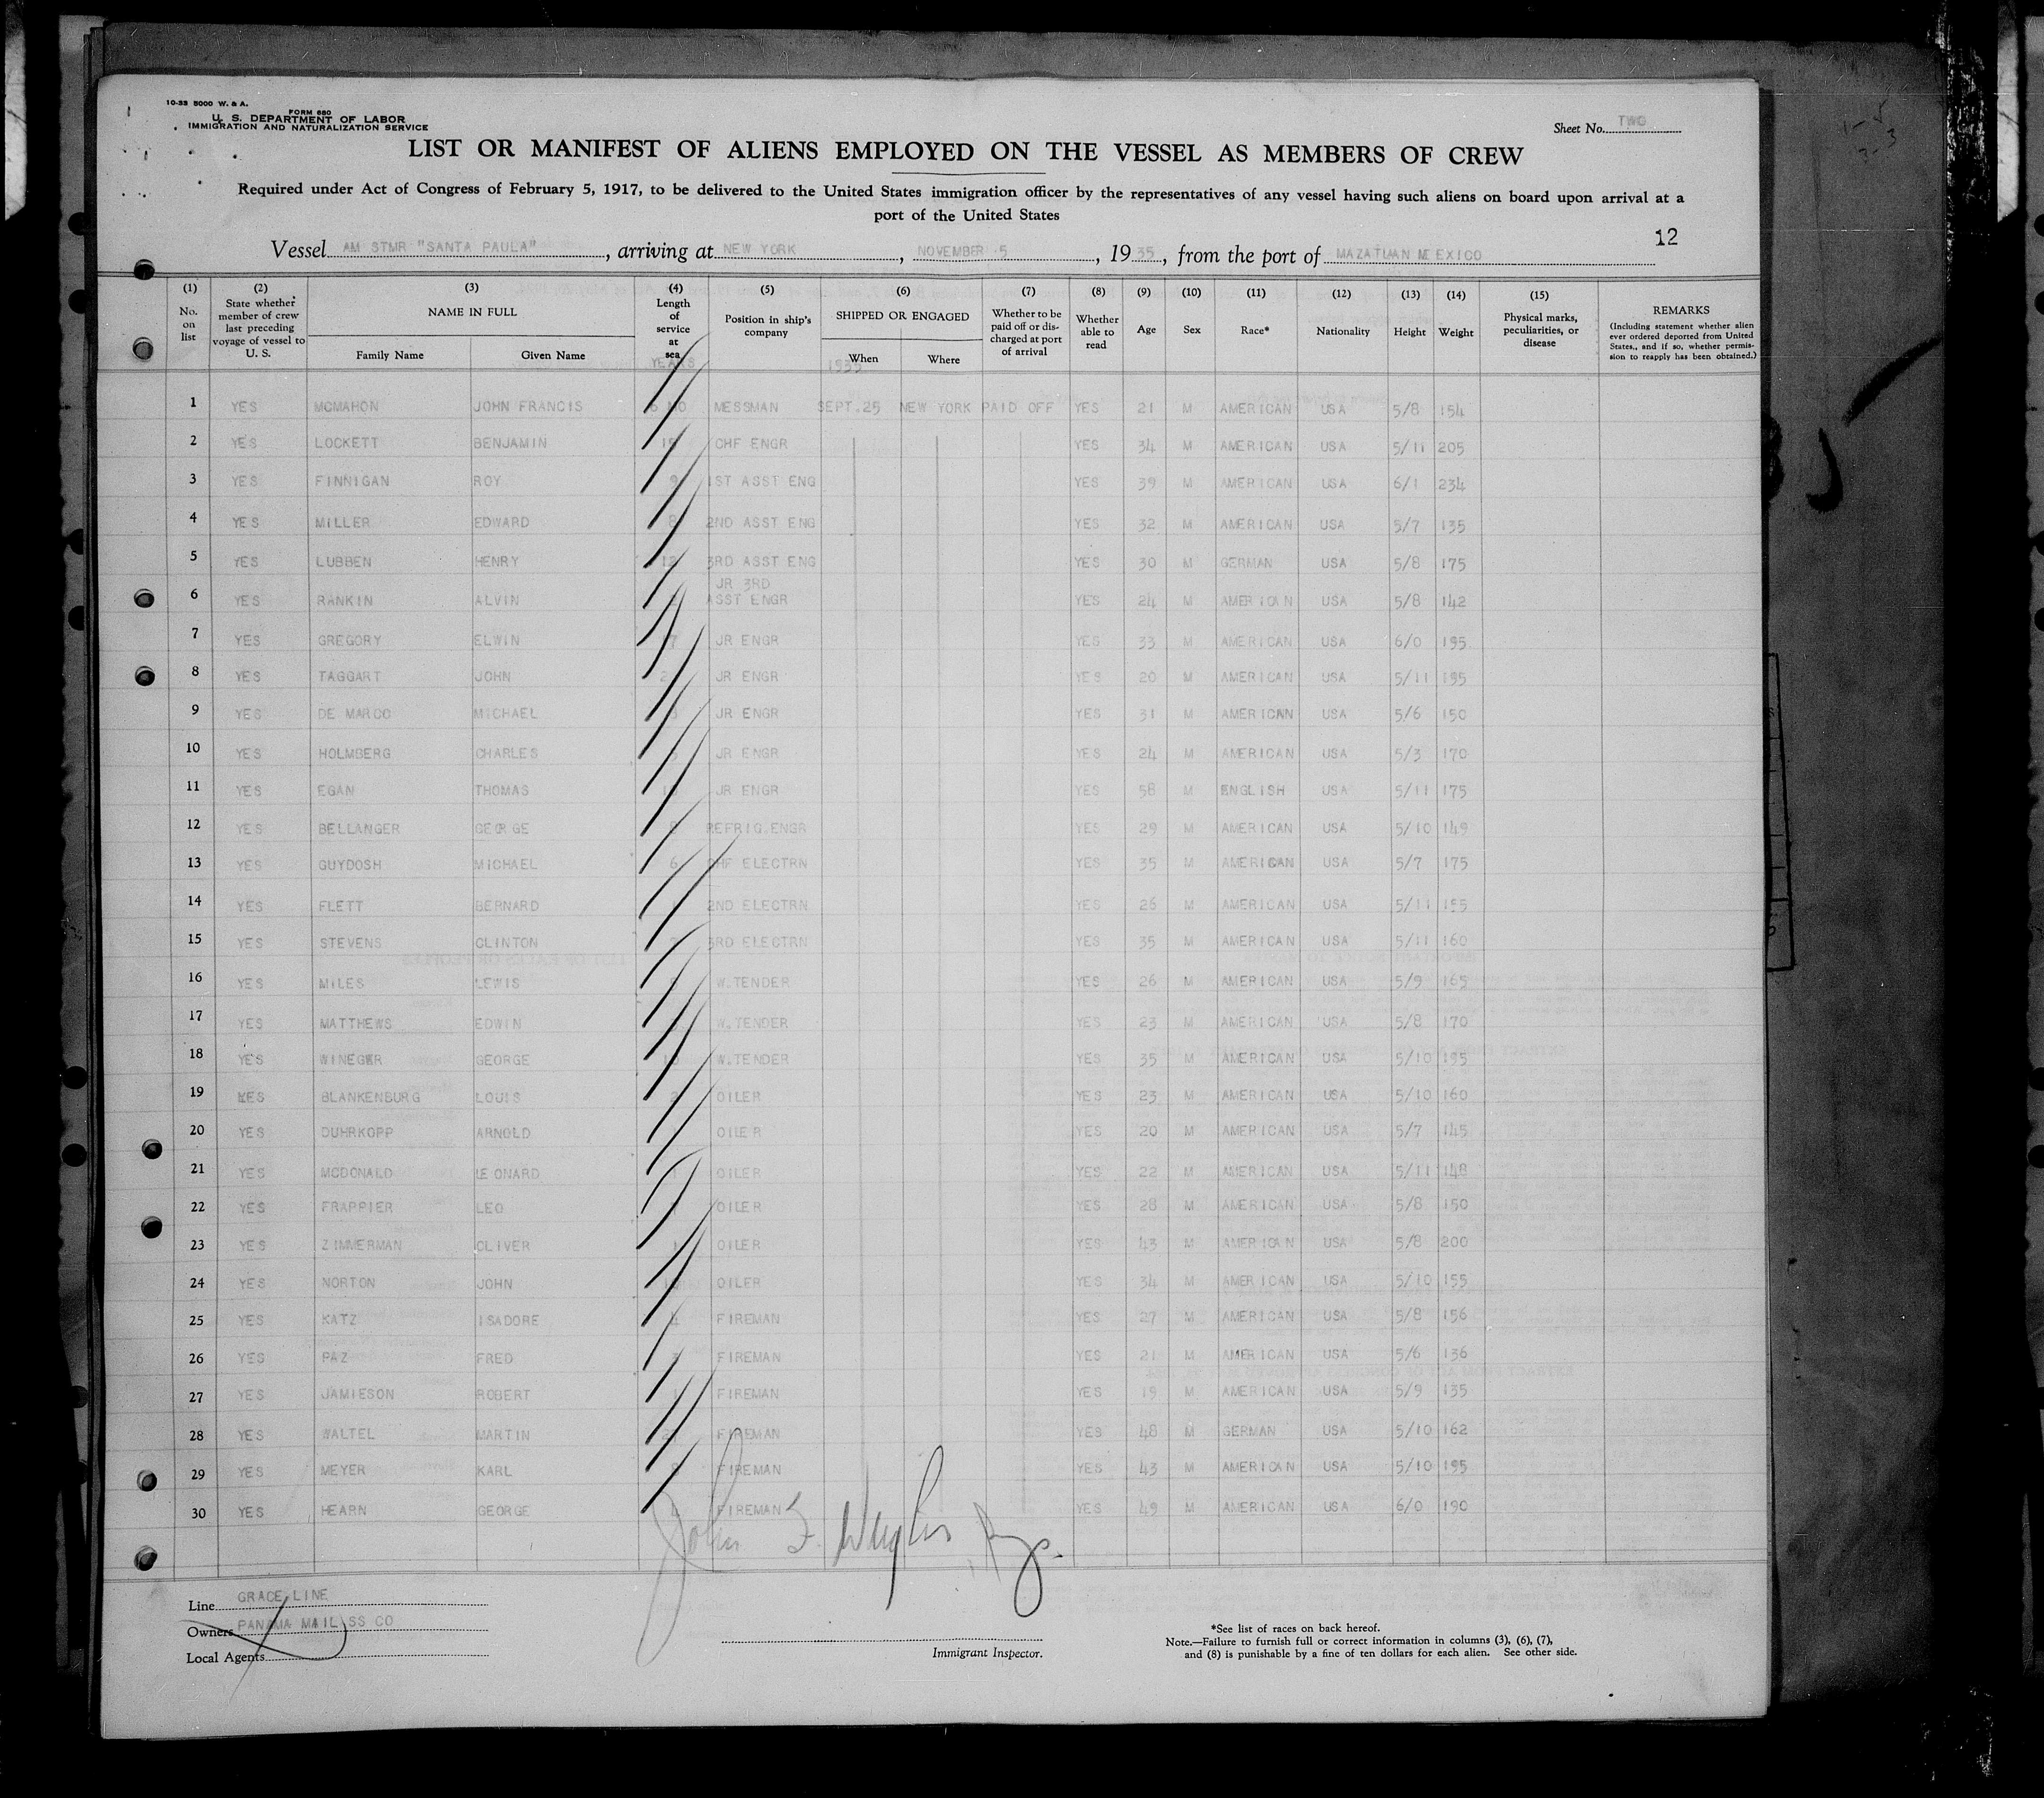 10-33 5000 W. & A.
FORM 680
U. S. DEPARTMENT OF LABOR
IMMIGRATION AND NATURALIZATION SERVICE
Sheet No. TWO
LIST OR MANIFEST OF ALIENS EMPLOYED ON THE VESSEL AS MEMBERS OF CREW
Required under Act of Congress of February 5, 1917, to be delivered to the United States immigration officer by the representatives of any vessel having such aliens on board upon arrival at a
port of the United States
12
Vessel AM STMR "SANTA PAULA", arriving at NEW YORK, NOVEMBER 5, 1935, from the port of MAZATLAN MEXICO
(1) No. on list
(2) State whether member of crew last preceding voyage of vessel to U. S.
(3) NAME IN FULL Family Name Given Name
(4) Length of service at sea YEARS
(5) Position in ship's company
(6) SHIPPED OR ENGAGED When Where 1935
(7) Whether to be paid off or discharged at port of arrival
(8) Whether able to read
(9) Age
(10) Sex
(11) Race*
(12) Nationality
(13) Height
(14) Weight
(15) Physical marks, peculiarities, or disease
REMARKS (Including statement whether alien ever ordered deported from United States, and if so, whether permission to reapply has been obtained.)
1 YES MCMAHON JOHN FRANCIS 6 MO MESSMAN SEPT.25 NEW YORK PAID OFF YES 21 M AMERICAN USA 5/8 154
2 YES LOCKETT BENJAMIN CHF ENGR YES 34 M AMERICAN USA 5/11 205
3 YES FINNIGAN ROY 9 1ST ASST ENG YES 39 M AMERICAN USA 6/1 234
4 YES MILLER EDWARD 8 2ND ASST ENG YES 32 M AMERICAN USA 5/7 135
5 YES LUBBEN HENRY 12 3RD ASST ENG YES 30 M GERMAN USA 5/8 175
6 YES RANKIN ALVIN JR 3RD ASST ENGR YES 24 M AMERICAN USA 5/8 142
7 YES GREGORY ELWIN 7 JR ENGR YES 33 M AMERICAN USA 6/0 195
8 YES TAGGART JOHN 2 JR ENGR YES 20 M AMERICAN USA 5/11 195
9 YES DE MARCO MICHAEL JR ENGR YES 31 M AMERICAN USA 5/6 150
10 YES HOLMBERG CHARLES JR ENGR YES 24 M AMERICAN USA 5/3 170
11 YES EGAN THOMAS JR ENGR YES 58 M ENGLISH USA 5/11 175
12 YES BELLANGER GEORGE REFRIG.ENGR YES 29 M AMERICAN USA 5/10 149
13 YES GUYDOSH MICHAEL 6 CHF ELECTRN YES 35 M AMERICAN USA 5/7 175
14 YES FLETT BERNARD 2ND ELECTRN YES 26 M AMERICAN USA 5/11 155
15 YES STEVENS CLINTON 3RD ELECTRN YES 35 M AMERICAN USA 5/11 160
16 YES MILES LEWIS W.TENDER YES 26 M AMERICAN USA 5/9 165
17 YES MATTHEWS EDWIN W.TENDER YES 23 M AMERICAN USA 5/8 170
18 YES WINEGAR GEORGE W.TENDER YES 35 M AMERICAN USA 5/10 195
19 YES BLANKENBURG LOUIS OILER YES 23 M AMERICAN USA 5/10 160
20 YES DUHRKOPP ARNOLD OILER YES 20 M AMERICAN USA 5/7 145
21 YES MCDONALD LEONARD OILER YES 22 M AMERICAN USA 5/11 148
22 YES FRAPPIER LEO OILER YES 28 M AMERICAN USA 5/8 150
23 YES ZIMMERMAN OLIVER OILER YES 43 M AMERICAN USA 5/8 200
24 YES NORTON JOHN OILER YES 34 M AMERICAN USA 5/10 155
25 YES KATZ ISADORE 4 FIREMAN YES 27 M AMERICAN USA 5/8 156
26 YES PAZ FRED FIREMAN YES 21 M AMERICAN USA 5/6 136
27 YES JAMIESON ROBERT FIREMAN YES 19 M AMERICAN USA 5/9 135
28 YES WALTEL MARTIN FIREMAN YES 48 M GERMAN USA 5/10 162
29 YES MEYER KARL FIREMAN YES 43 M AMERICAN USA 5/10 195
30 YES HEARN GEORGE FIREMAN YES 49 M AMERICAN USA 6/0 190
John F.
Line GRACE LINE
Owners PANAMA MAIL SS CO
Local Agents
Immigrant Inspector.
*See list of races on back hereof.
Note.—Failure to furnish full or correct information in columns (3), (6), (7),
and (8) is punishable by a fine of ten dollars for each alien. See other side.